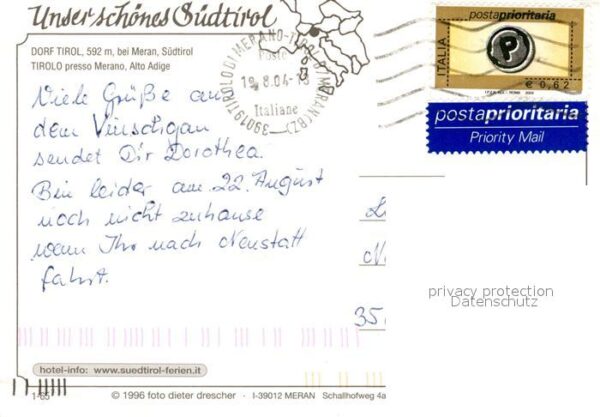 Unser schönes Südtirol
DORF TIROL, 592 m, bei Meran, Südtirol
TIROLO presso Merano, Alto Adige
Viele Grüße aus
dem Vinschgau
sendet Dir Dorothea.
Bin leider am 22. August
noch nicht zuhause
wenn Ihr nach Neustatt
fahrt.
Poste
19.8.04-13
Italiane
39019 TIROLO DI MERANO
postaprioritaria
ITALIA
P
€ 0,62
postaprioritaria
Priority Mail
L
N
35
privacy protection
Datenschutz
hotel-info: www.suedtirol-ferien.it
1-65
© 1996 foto dieter drescher - I-39012 MERAN Schallhofweg 4a